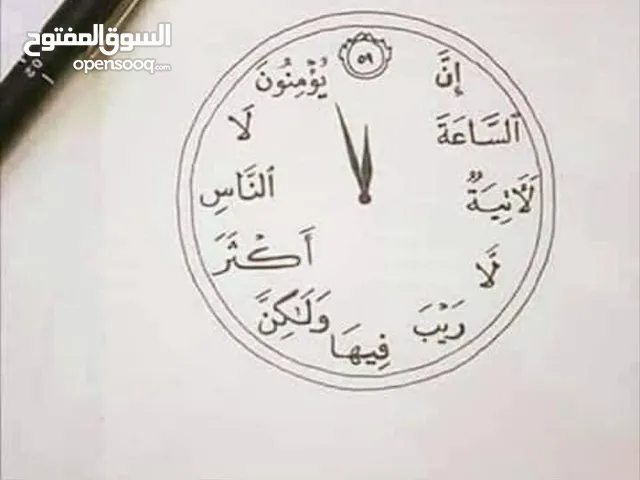 السوق المفتوح
opensooq.com
٥٩
إِنَّ
ٱلسَّاعَةَ
لَأٓتِيَةٌ
لَّا
رَيْبَ
فِيهَا
وَلَٰكِنَّ
أَكْثَرَ
ٱلنَّاسِ
لَا
يُؤْمِنُونَ